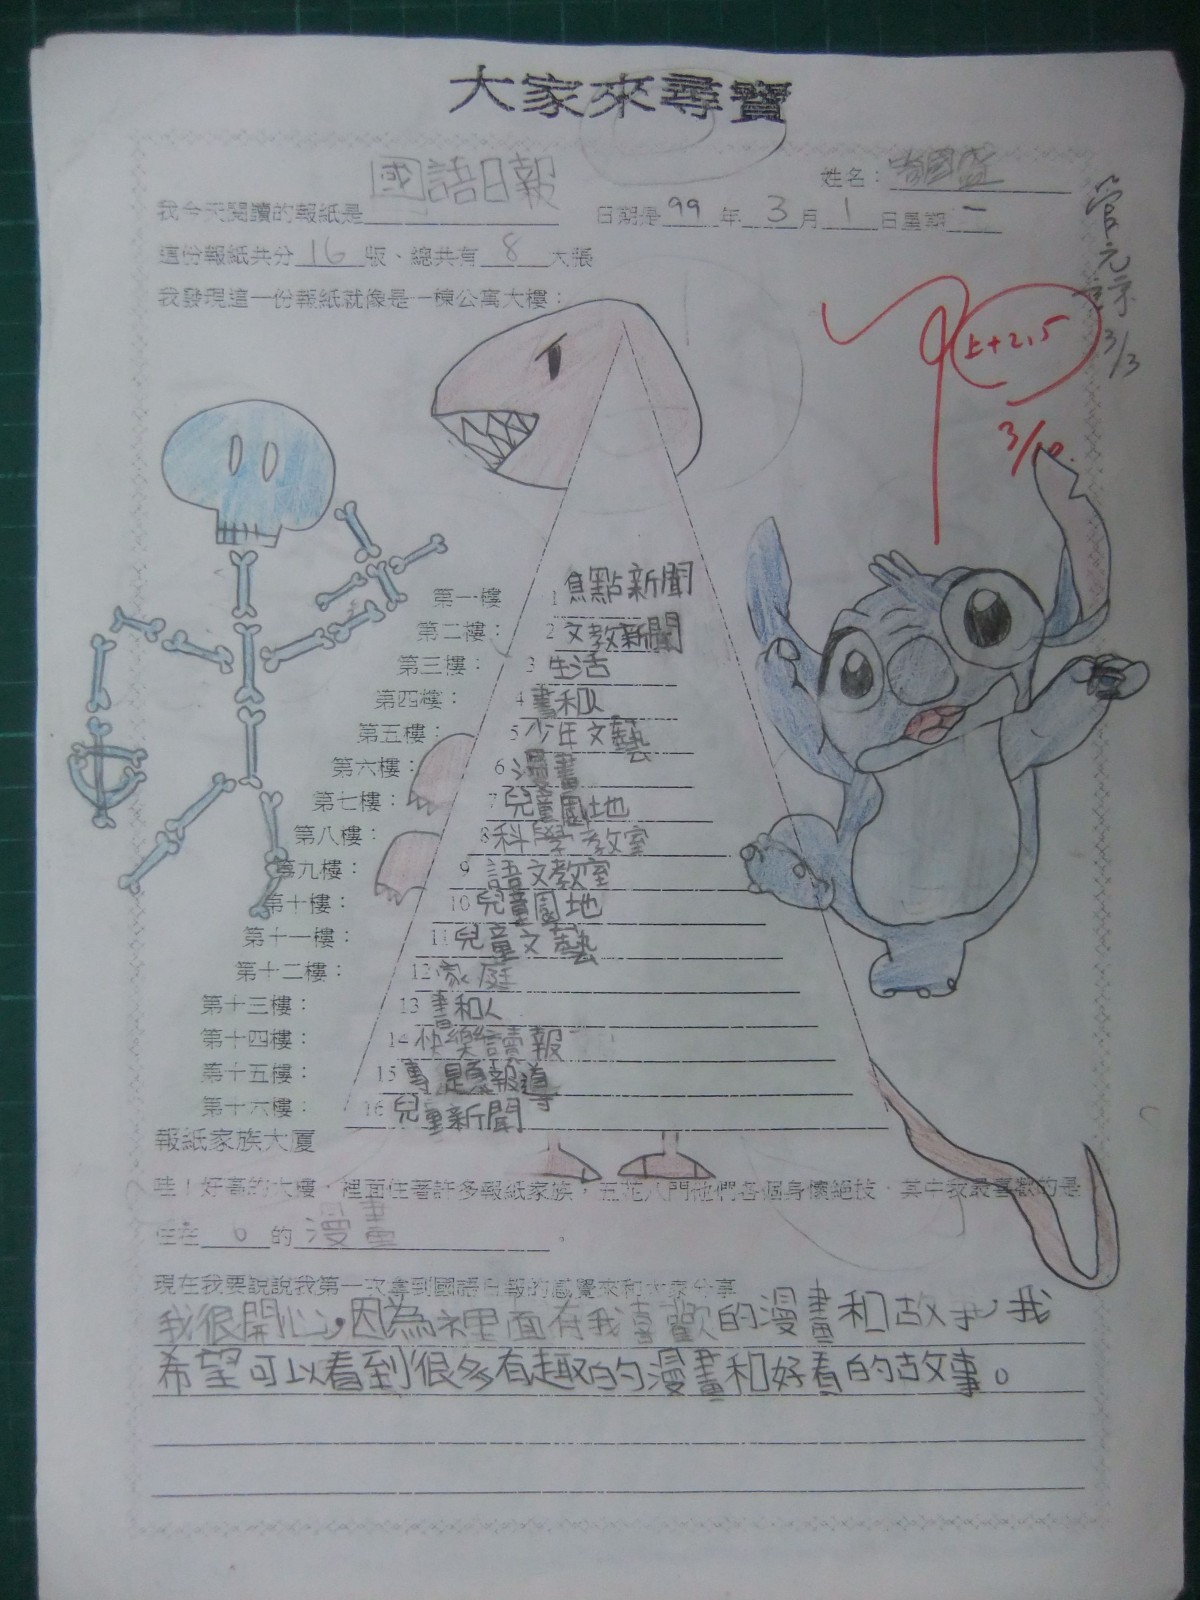 大家來尋寶
姓名：
我今天閱讀的報紙是國語日報 日期是99年3月1日星期一
這份報紙共分16版、總共有8大張
我發現這一份報紙就像是一棟公寓大樓：
管元宗
3/3
上+2.5
3/10.
第一樓 1焦點新聞
第二樓： 2文教新聞
第三樓： 3生活
第四樓： 4書和人
第五樓： 5少年文藝
第六樓： 6漫畫
第七樓： 7兒童園地
第八樓： 8科學教室
第九樓： 9語文教室
第十樓： 10兒童園地
第十一樓： 11兒童文藝
第十二樓： 12家庭
第十三樓： 13書和人
第十四樓： 14快樂讀報
第十五樓： 15專題報導
第十六樓： 16兒童新聞
報紙家族大廈
哇！好高的大樓，裡面住著許多報紙家族，五花八門他們各個身懷絕技，其中我最喜歡的是
住在6的漫畫。
現在我要說說我第一次拿到國語日報的感覺來和大家分享
我很開心，因為裡面有我喜歡的漫畫和故事，我
希望可以看到很多有趣的漫畫和好看的故事。